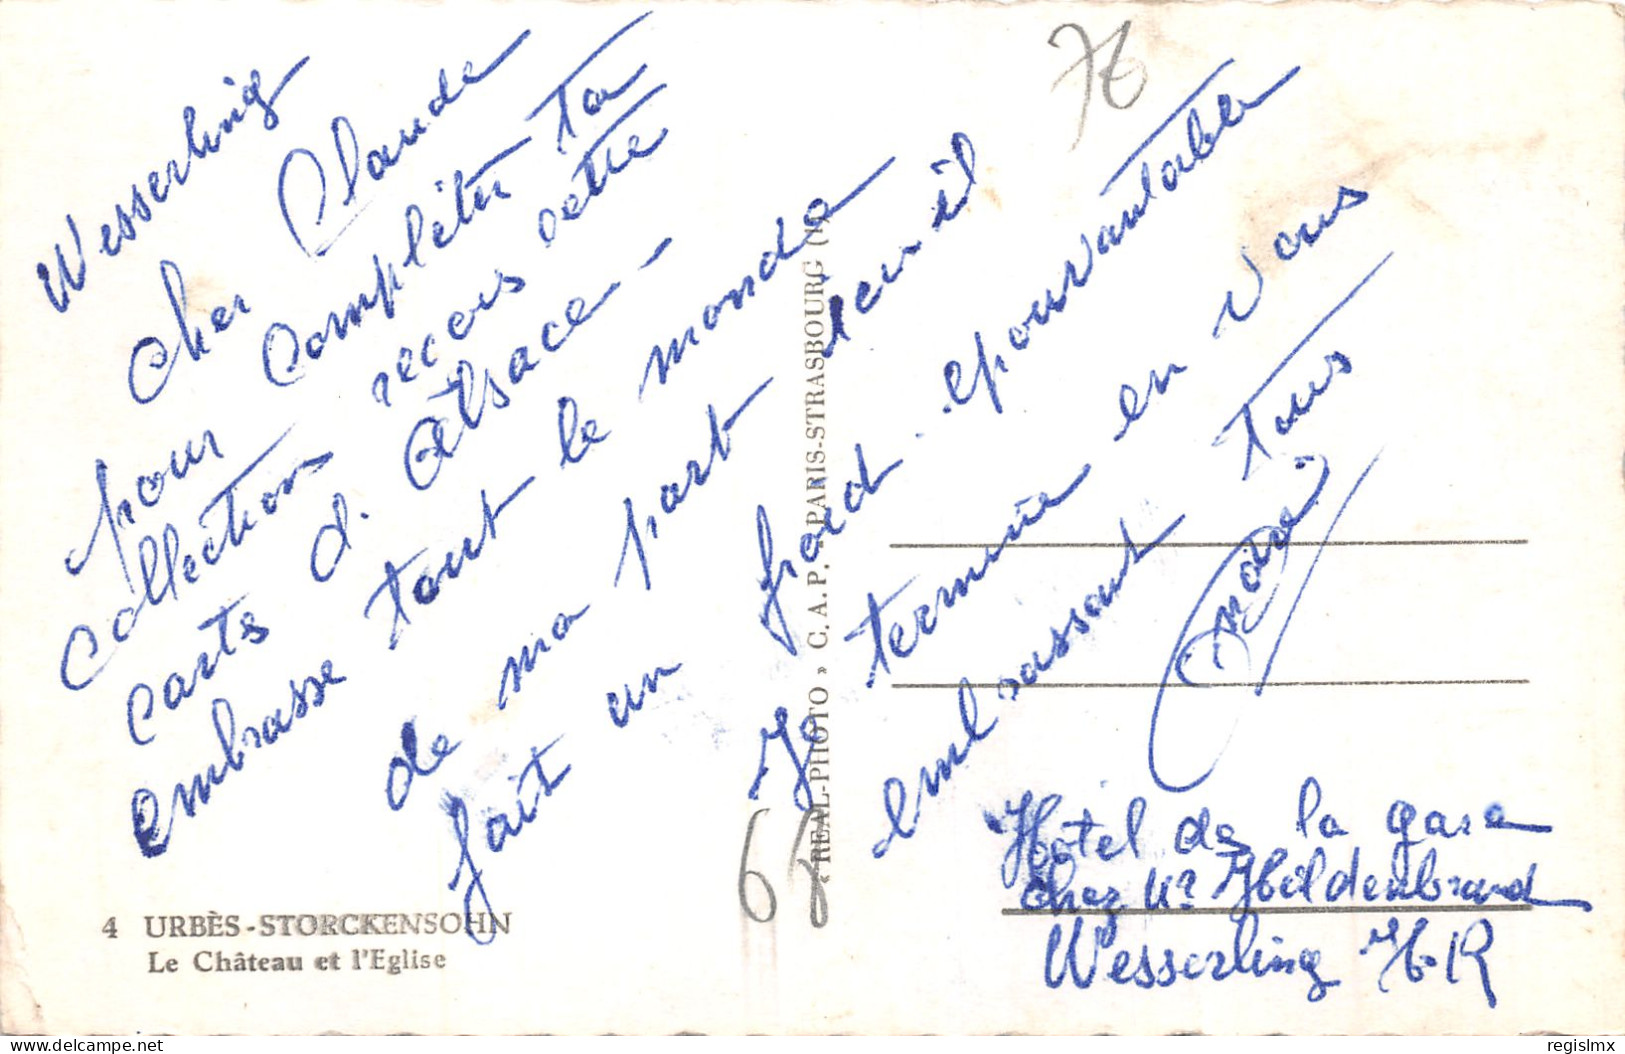 Wesserling
Cher Claude
pour compléter ta
collection recois cette
carte d'Alsace -
embrasse tout le monde
de ma part ici il
fait un froid épouvantable
Je termine en vous
embrassant tous
Hôtel de la gare
chez Mr Hildenbrand
Wesserling H R
4 URBÈS-STORCKENSOHN
Le Château et l'Eglise
« REAL-PHOTO » C. A. P. PARIS-STRASBOURG
76
68
delcampe.net
regislmx